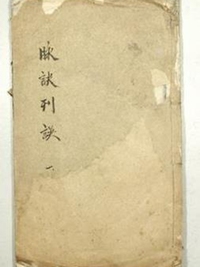 脉訣刊誤 一